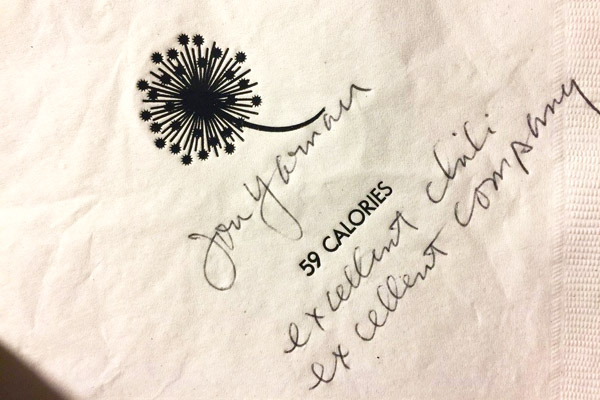 Jon Yarman
59 CALORIES
excellent chili
excellent company